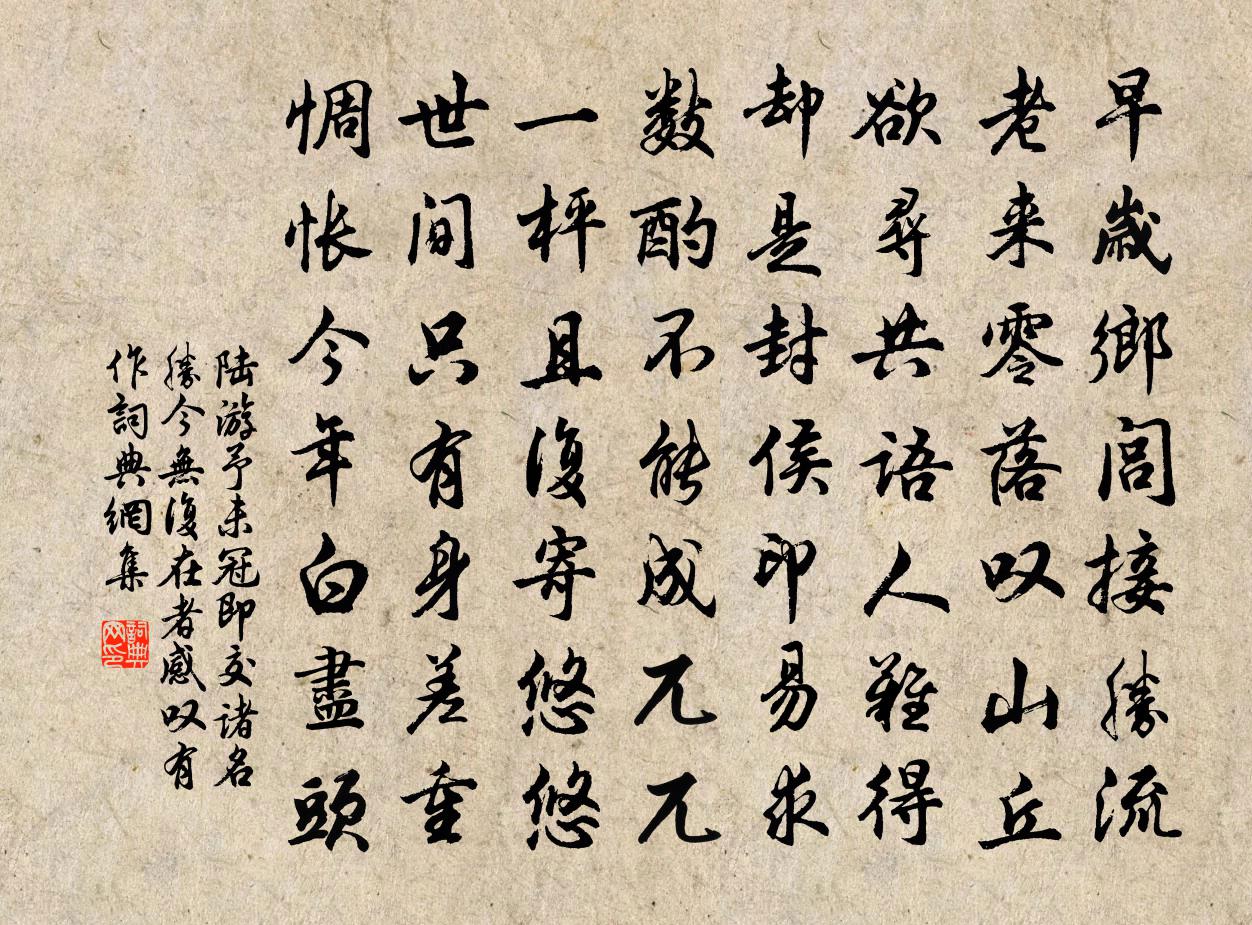 早歲鄉閭接勝流
老來零落叹山丘
欲尋共語人難得
却是封侯印易求
數酌不能成兀兀
一枰且復寄悠悠
世间只有身差重
惆怅今年白盡頭
陆游予未冠即交诸名
勝今無復在者感叹有
作詞典網集
詞典网印